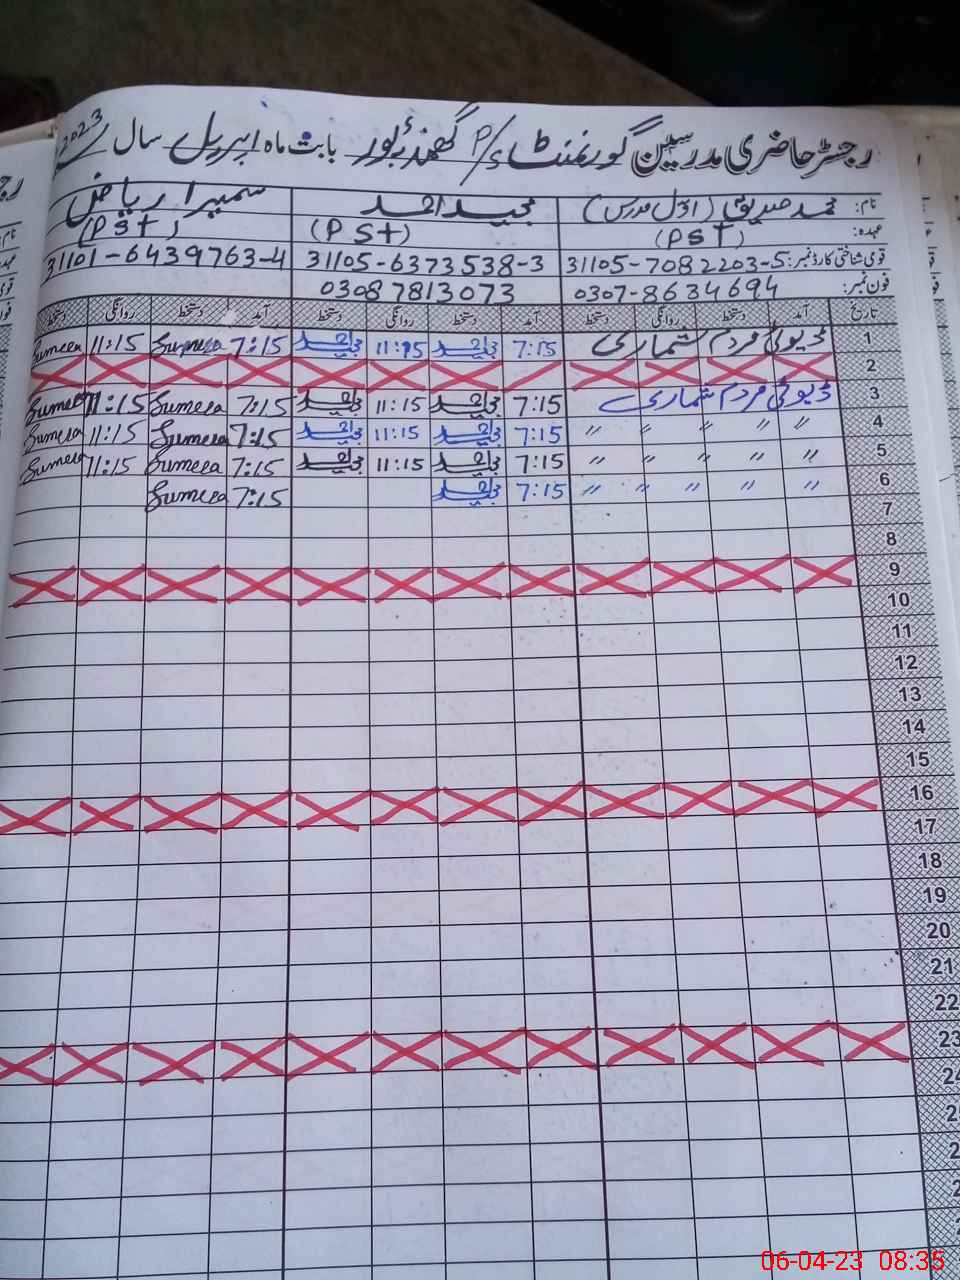 رجسٹر حاضری مدرسین گورنمنٹ P/S گھمنڈ پور بابت ماہ اپریل سال 2023
نام: محمد صدیق (اول مدرس) مجید احمد سمیرا ریاض
عہدہ: (PST) (PST) (PST)
قومی شناختی کارڈ نمبر: 31105-7082203-5 31105-6373538-3 31101-6439763-4
فون نمبر: 0307-8634694 03087813073
تاریخ آمد دستخط روانگی دستخط آمد دستخط روانگی دستخط آمد دستخط روانگی دستخط
1 ڈیوٹی مردم شماری 7:15 مجید احمد 11:15 مجید احمد 7:15 Sumeera 11:15 Sumeera
2
3 ڈیوٹی مردم شماری 7:15 مجید احمد 11:15 مجید احمد 7:15 Sumeera 11:15 Sumeera
4 〃 〃 〃 〃 〃 7:15 مجید احمد 11:15 مجید احمد 7:15 Sumeera 11:15 Sumeera
5 〃 〃 〃 〃 〃 7:15 مجید احمد 11:15 مجید احمد 7:15 Sumeera 11:15 Sumeera
6 〃 〃 〃 〃 〃 7:15 مجید احمد 7:15 Sumeera
7
8
9
10
11
12
13
14
15
16
17
18
19
20
21
22
23
24
06-04-23 08:35